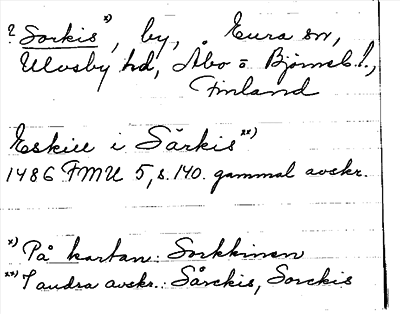 ? Sorkis x), by, Eura sn,
Ulvsby hd, Åbo o Bjönneb. l.,
Finland
Eskill i Särkis xx)
1486 FMU 5, s. 140. gammal avskr.
x) På kartan: Sorkkinen
xx) I andra avskr.: Sårckis, Sorckis